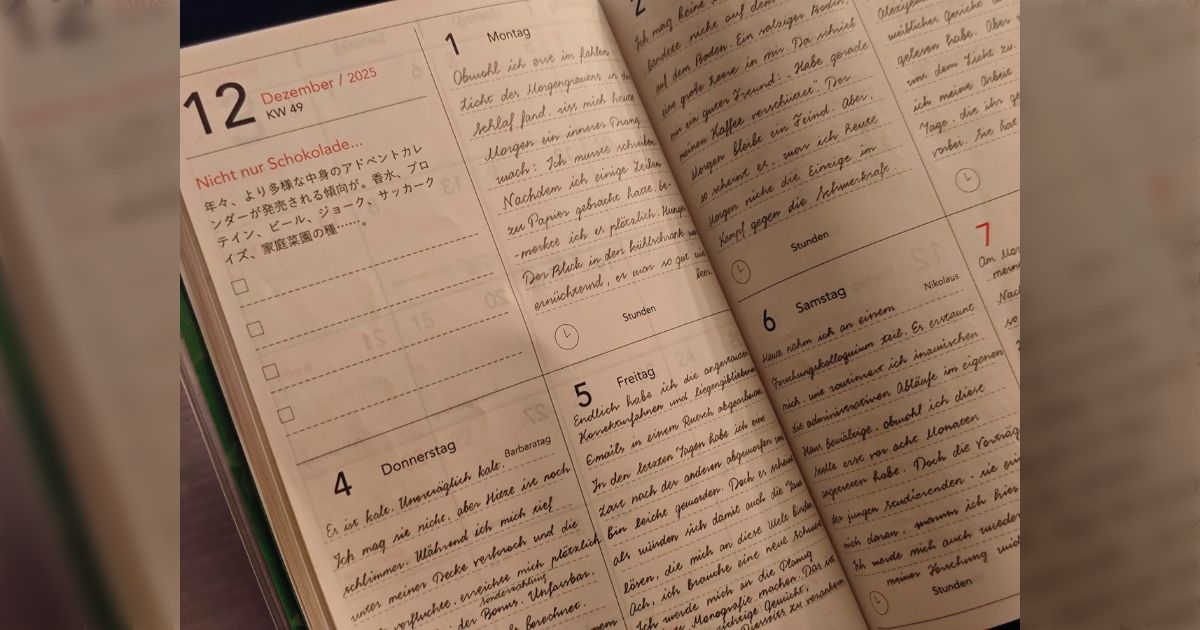 12
Dezember / 2025
KW 49
Nicht nur Schokolade...
年々、より多様な中身のアドベントカレ
ンダーが発売される傾向が。香水、プロ
テイン、ビール、ジョーク、サッカーク
イズ、家庭菜園の種……。
1 Montag
Obwohl ich erst im fahlen
Licht des Morgengrauens in den
Schlaf fand, riss mich heute
Morgen ein innerer Drang
wach: Ich musste schreiben
Nachdem ich einige Zeilen
zu Papier gebracht hatte, be-
-merkte ich es plötzlich. Hunger
Der Blick in den Kühlschrank war
ernüchternd, er war so gut wie
leer.
Stunden
2
Ich mag keine
landete nicht auf dem
auf dem Boden. Ein salziger Boden,
eine große Leere in mir. Da schrieb
mir ein guter Freund: „Habe gerade
meinen Kaffee verschüttet." Der
Morgen bleibt ein Feind. Aber,
so scheint es, war ich heute
Morgen nicht die Einzige im
Kampf gegen die Schwerkraft
Stunden
weibliches Gesicht
gelesen habe. Aber
um dem Licht zu
ich meine Arbeit
Tage, die ihr
vorbei. Sie hat
4 Donnerstag
Barbaratag
Es ist kalt. Unerträglich kalt.
Ich mag sie nicht, aber Hitze ist noch
schlimmer. Während ich mich tief
unter meiner Decke verkroch und die
verfluchte, erreichte mich plötzlich
Sonderzahlung
der Bonus. Unfassbar.
berechnet.
5 Freitag
Endlich habe ich die angestauten
Korrekturfahnen und liegengebliebenen
Emails in einem Rutsch abgearbeitet.
In den letzten Tagen habe ich eine
Last nach der anderen abgeworfen und
bin leicht geworden. Doch es scheint
als würden sich damit auch die
lösen, die mich an diese Welt binden
Ach, ich brauche eine neue schwere
Ich werde mich an die Planung
Monografie machen. Das ist
richtige Gewicht,
Diesseits zu verankern
6 Samstag
Nikolaus
Heute nahm ich an einem
Forschungskolloquium teil. Es erstaunt
mich, wie routiniert ich inzwischen
die administrativen Abläufe im eigenen
Haus bewältige, obwohl ich diese
Stelle erst vor acht Monaten
angetreten habe. Doch die Vorträge
der jungen Studierenden - sie
mich daran, warum ich hier
Ich werde mich auch wieder
meiner Forschung
Stunden
7
Am
meine
so